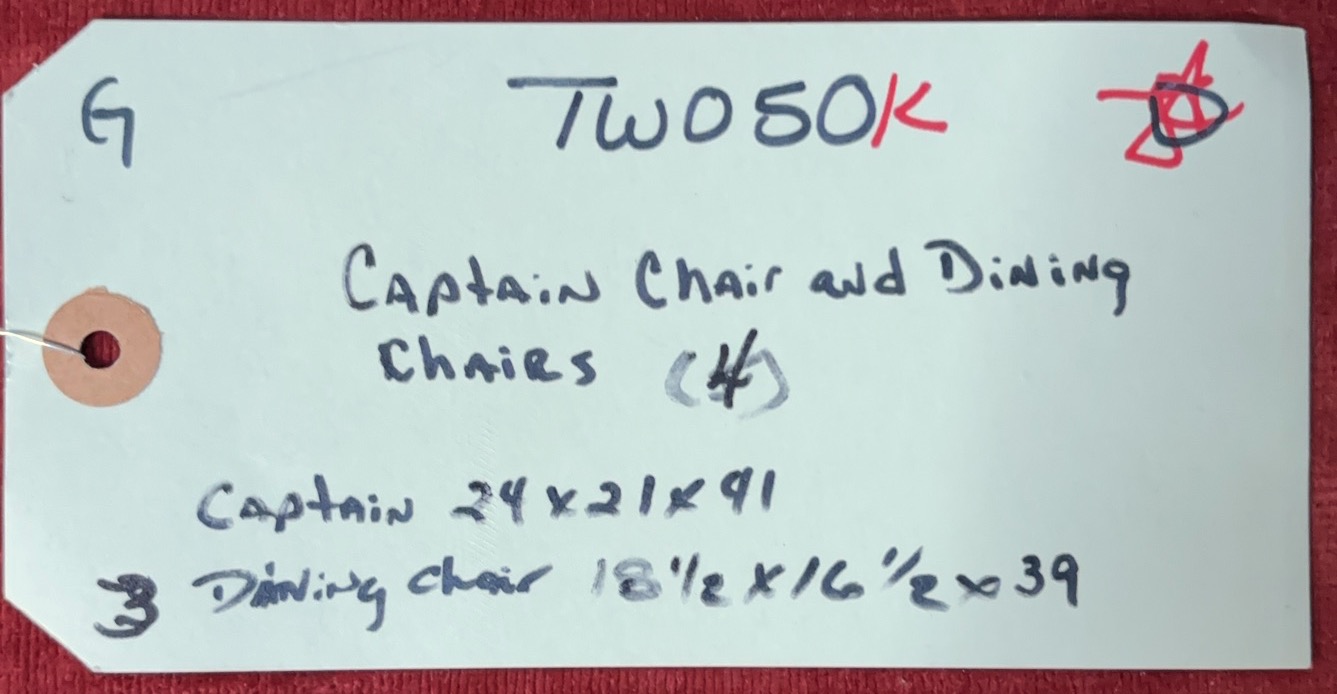 G TWO50K D
Captain Chair and Dining
Chairs (4)
Captain 24 x 21 x 41
3 Dining chair 18 1/2 x 16 1/2 x 39